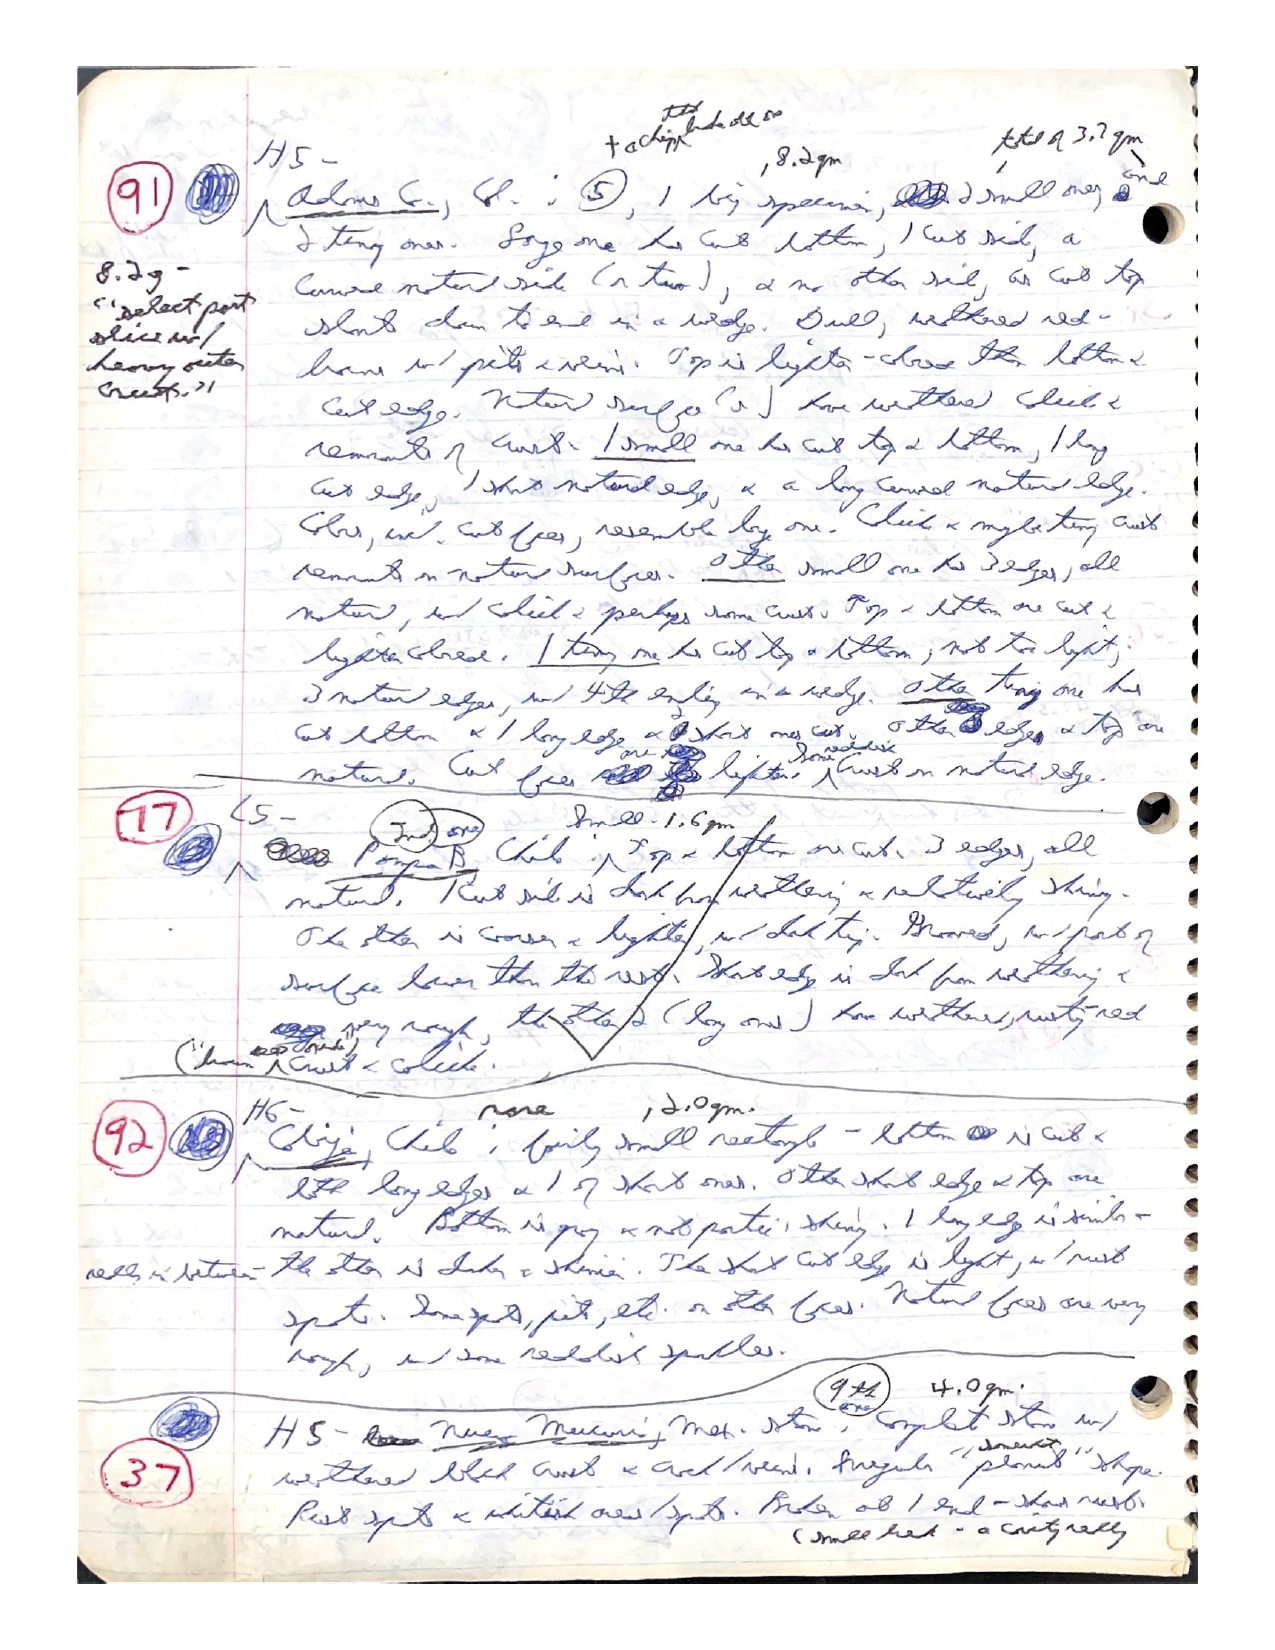 the
+ a chip broke off one
H5 -
, 8.2 gm
total of 3.7 gm
91
Adams Co., Col. : 5, 1 big specimen, 2 small ones, and
2 tiny ones. Large one has cut bottom, 1 cut side, a
8.2 g -
curved natural side (or two), & no other side, as cut top
"select part
slants down to end in a wedge. Dull, weathered red-
slice w/
brown w/ pits & veins. Top is lighter-colored than bottom &
heavy outer
crust."
cut edge. Natural surface(s) have weathered &
remnants of crust. 1 small one has cut top & bottom, 1 long
cut edge, 1 short natural edge, & a long curved natural edge.
Color, incl. cut faces, resemble big one. & maybe tiny crust
remnants on natural surfaces. Other small one has 3 edges, all
natural, w/ & perhaps some crust. Top & bottom are cut &
lighter colored. 1 tiny one has cut top & bottom, not too light,
3 natural edges, w/ 4th ending in a wedge. Other tiny one has
cut bottom & 1 long edge & 2 short ones cut. Other edge & top are
natural. Cut faces are lighter. Some reddish crust on natural edge.
77
L5 -
2nd one
Small - 1.6 gm
Pampa B, Chile : Top & bottom are cut. 3 edges, all
natural. 1 cut side is dark from weathering & relatively shiny.
The other is coarser & lighter, w/ dark tip. Grooved, w/ part of
surface lower than the rest. Short edge is dark from weathering &
very rough, the other 2 (long ones) have weathered, rusty-red
("brown inside") crust &
H6 -
none
, 2.0 gm.
92
Cobija, Chile ; fairly small rectangle - bottom is cut &
both long edges & 1 of short ones. Other short edge & top are
natural. Bottom is gray & not partic. shiny. 1 long edge is similar -
really in between - the other is darker & shinier. The short cut edge is light, w/ rust
spots. Some spots, pits, etc. on other faces. Natural faces are very
rough, w/ some reddish sparkles.
9th one
4.0 gm.
H5 - Nuevo Mercurio, Mex. stone. Complete stone w/
37
weathered black crust & crack/veins. Irregular "somewhat peanut" shape.
Rust spots & whitish areas/spots. Broken at 1 end - shows rust.
(small hole - a cavity really